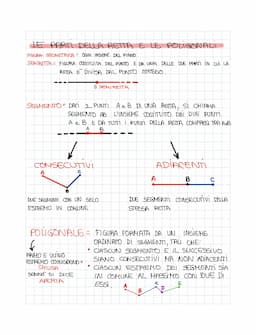 LE PARTI DELLA RETTA E LE POLIGONALI
FIGURA GEOMETRICA: OGNI INSIEME DEL PIANO.
SEMIRETTA: FIGURA COSTITUITA DAL PUNTO E DA UNA DELLE DUE PARTI IN CUI LA
RETTA E' DIVISA DAL PUNTO STESSO.
SEMIRETTA
SEGMENTO: DATI 2 PUNTI A e B DI UNA RETTA, SI CHIAMA
SEGMENTO AB L'INSIEME COSTITUITO DEI DUE PUNTI
A e B E DA TUTTI I PUNTI DELLA RETTA COMPRESI TRA A e B
A B
CONSECUTIVI
ADIACENTI
A C
B
A B C
DUE SEGMENTI CON UN SOLO
ESTREMO IN COMUNE
DUE SEGMENTI CONSECUTIVI DELLA
STESSA RETTA
POLIGONALE = FIGURA FORMATA DA UN INSIEME
ORDINATO DI SEGMENTI, TALI CHE:
• CIASCUN SEGMENTO E IL SUCCESSIVO
SIANO CONSECUTIVI MA NON ADIACENTI
• CIASCUN ESTREMO DEI SEGMENTI SIA
IN COMUNE AL MASSIMO CON DUE DI
ESSI
PRIMO E ULTIMO
ESTREMO COINCIDONO=
CHIUSA
SENNO' SI DICE
APERTA